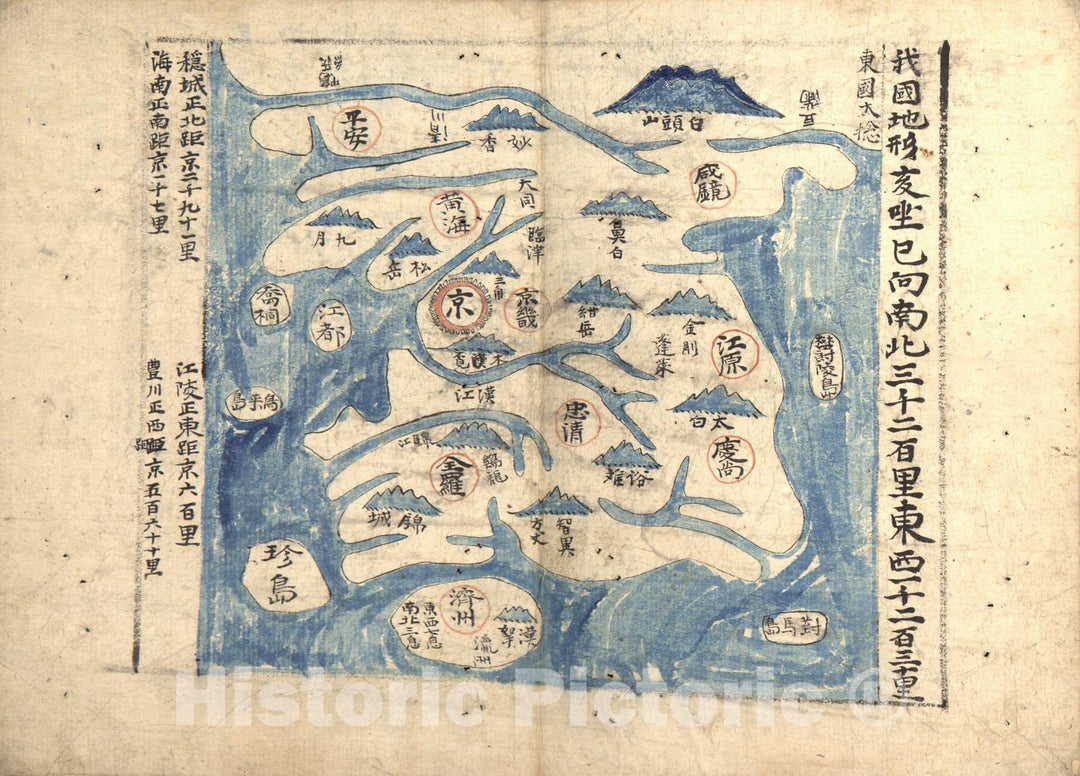 我國地形亥坐巳向南北三十二百里東西一十二百三十里
東國大揔
白頭山
鴨綠
平安
清川
妙香
咸鏡
黃海
大同
臨津
九月
松岳
鼻白
三角
京
京畿
紺岳
金剛
蓬萊
江原
喬桐
江都
木覓
漢江
太白
忠清
慶尚
錦江
鷄龍
全羅
俗離
錦城
智異
方丈
珍島
濟州
東西七息
南北二息
漢拏
瀛州
對馬島
穩城正北距京二千九十一里
海南正南距京一千十七里
江陵正東距京六百里
豊川正西距京五百六十十里
Historic Pictoric ®